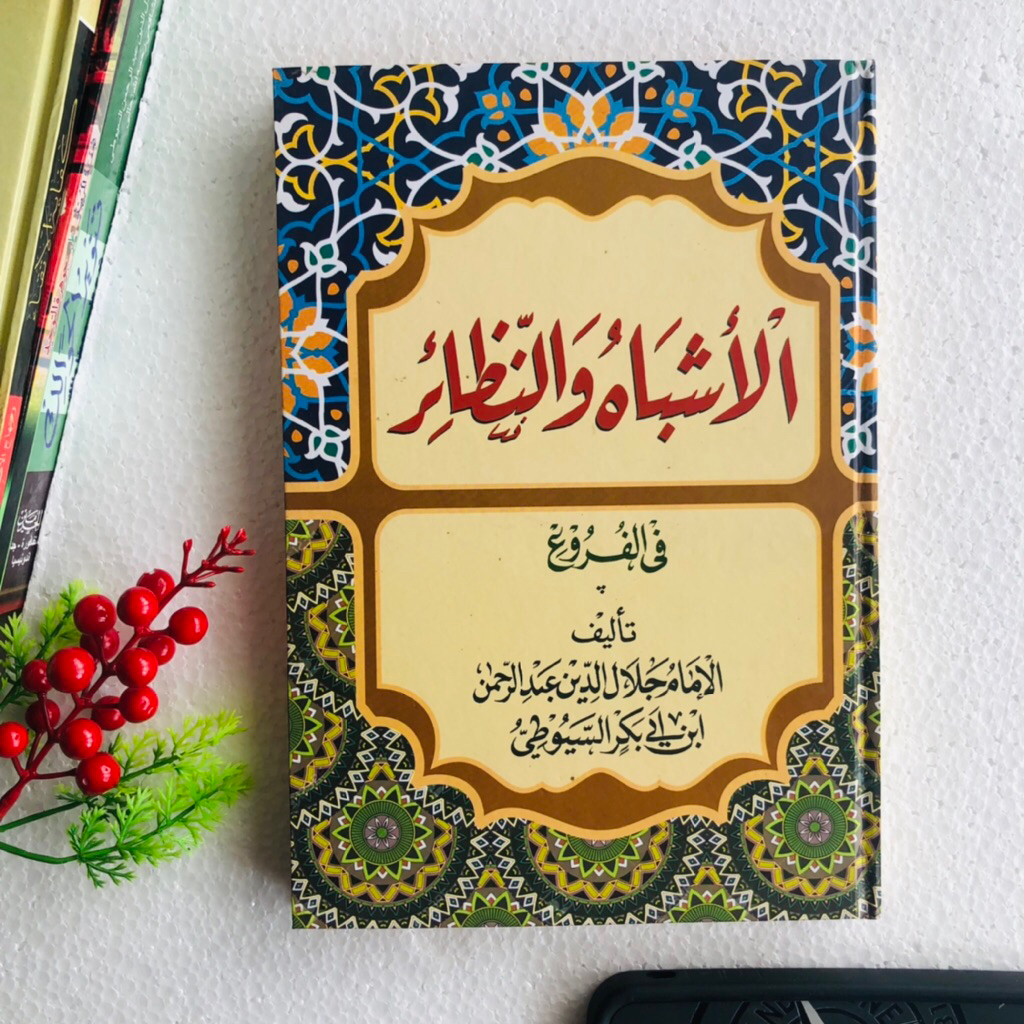 الْأَشْبَاهُ وَالنَّظَائِرِ
فِى الفُرُوْعِ
تأليف
الإمَامُ جَلَالُ الدِّيْنِ عَبْدُ الرَّحْمٰنِ
ابْنِ أَبِي بَكْرٍ السُّيُوْطِيُّ